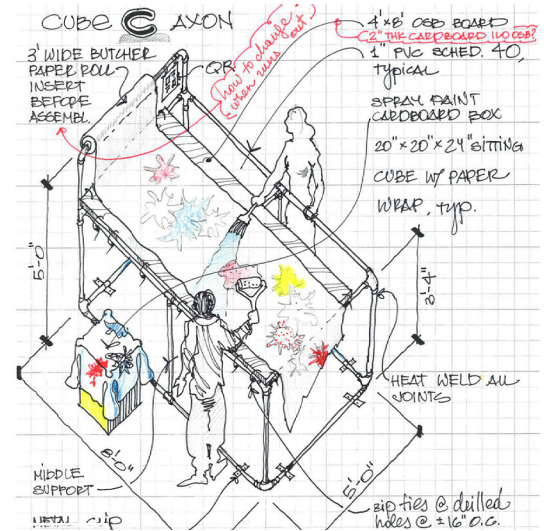 CUBE C AXON
3' WIDE BUTCHER
PAPER ROLL
INSERT
BEFORE
ASSEMBL.
QR
how to change
when runs
out.
4'x8' OSB BOARD
(2" THK CARDBOARD I/O OSB?
1" PVC SCHED. 40,
typical
SPRAY PAINT
CARDBOARD BOX
20"x20"x24" SITTING
CUBE W/ PAPER
WRAP, typ.
5'-0"
3'-4"
HEAT WELD ALL
JOINTS
8'-0"
5'-0"
MIDDLE
SUPPORT
zip ties @ drilled
holes @ ±16" O.C.
METAL CLIP